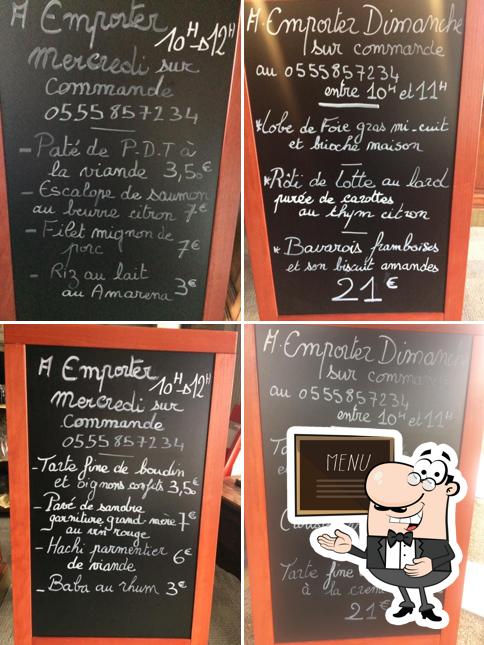 A Emporter
10H→12H
Mercredi sur
Commande
0555857234
- Paté de P-D-T à
la viande 3,50€
- Escalope de saumon
au beurre citron 7€
- Filet mignon de
porc 7€
- Riz au lait
au Amarena 3€
A Emporter Dimanche
sur commande
au 0555857234
entre 10H et 11H
*Lobe de Foie gras mi-cuit
et brioche maison
*Rôti de lotte au lard
purée de carottes
au thym citron
*Bavarois framboises
et son biscuit amandes
21€
A Emporter
10H→12H
Mercredi sur
Commande
0555857234
- Tarte fine de boudin
et oignons confits 3,50€
- Pavé de sandre
garniture grand mère 7€
au vin rouge
- Hachi parmentier
de viande 6€
- Baba au rhum 3€
A Emporter Dimanche
sur commande
au 0555857234
entre 10H et 11H
MENU
Tarte fine
à la crème
21€